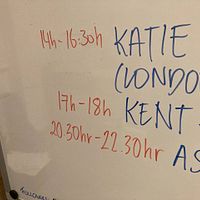 14h-16:30h KATIE
(LONDO
17h-18h KENT
20.30hr-22.30hr AS